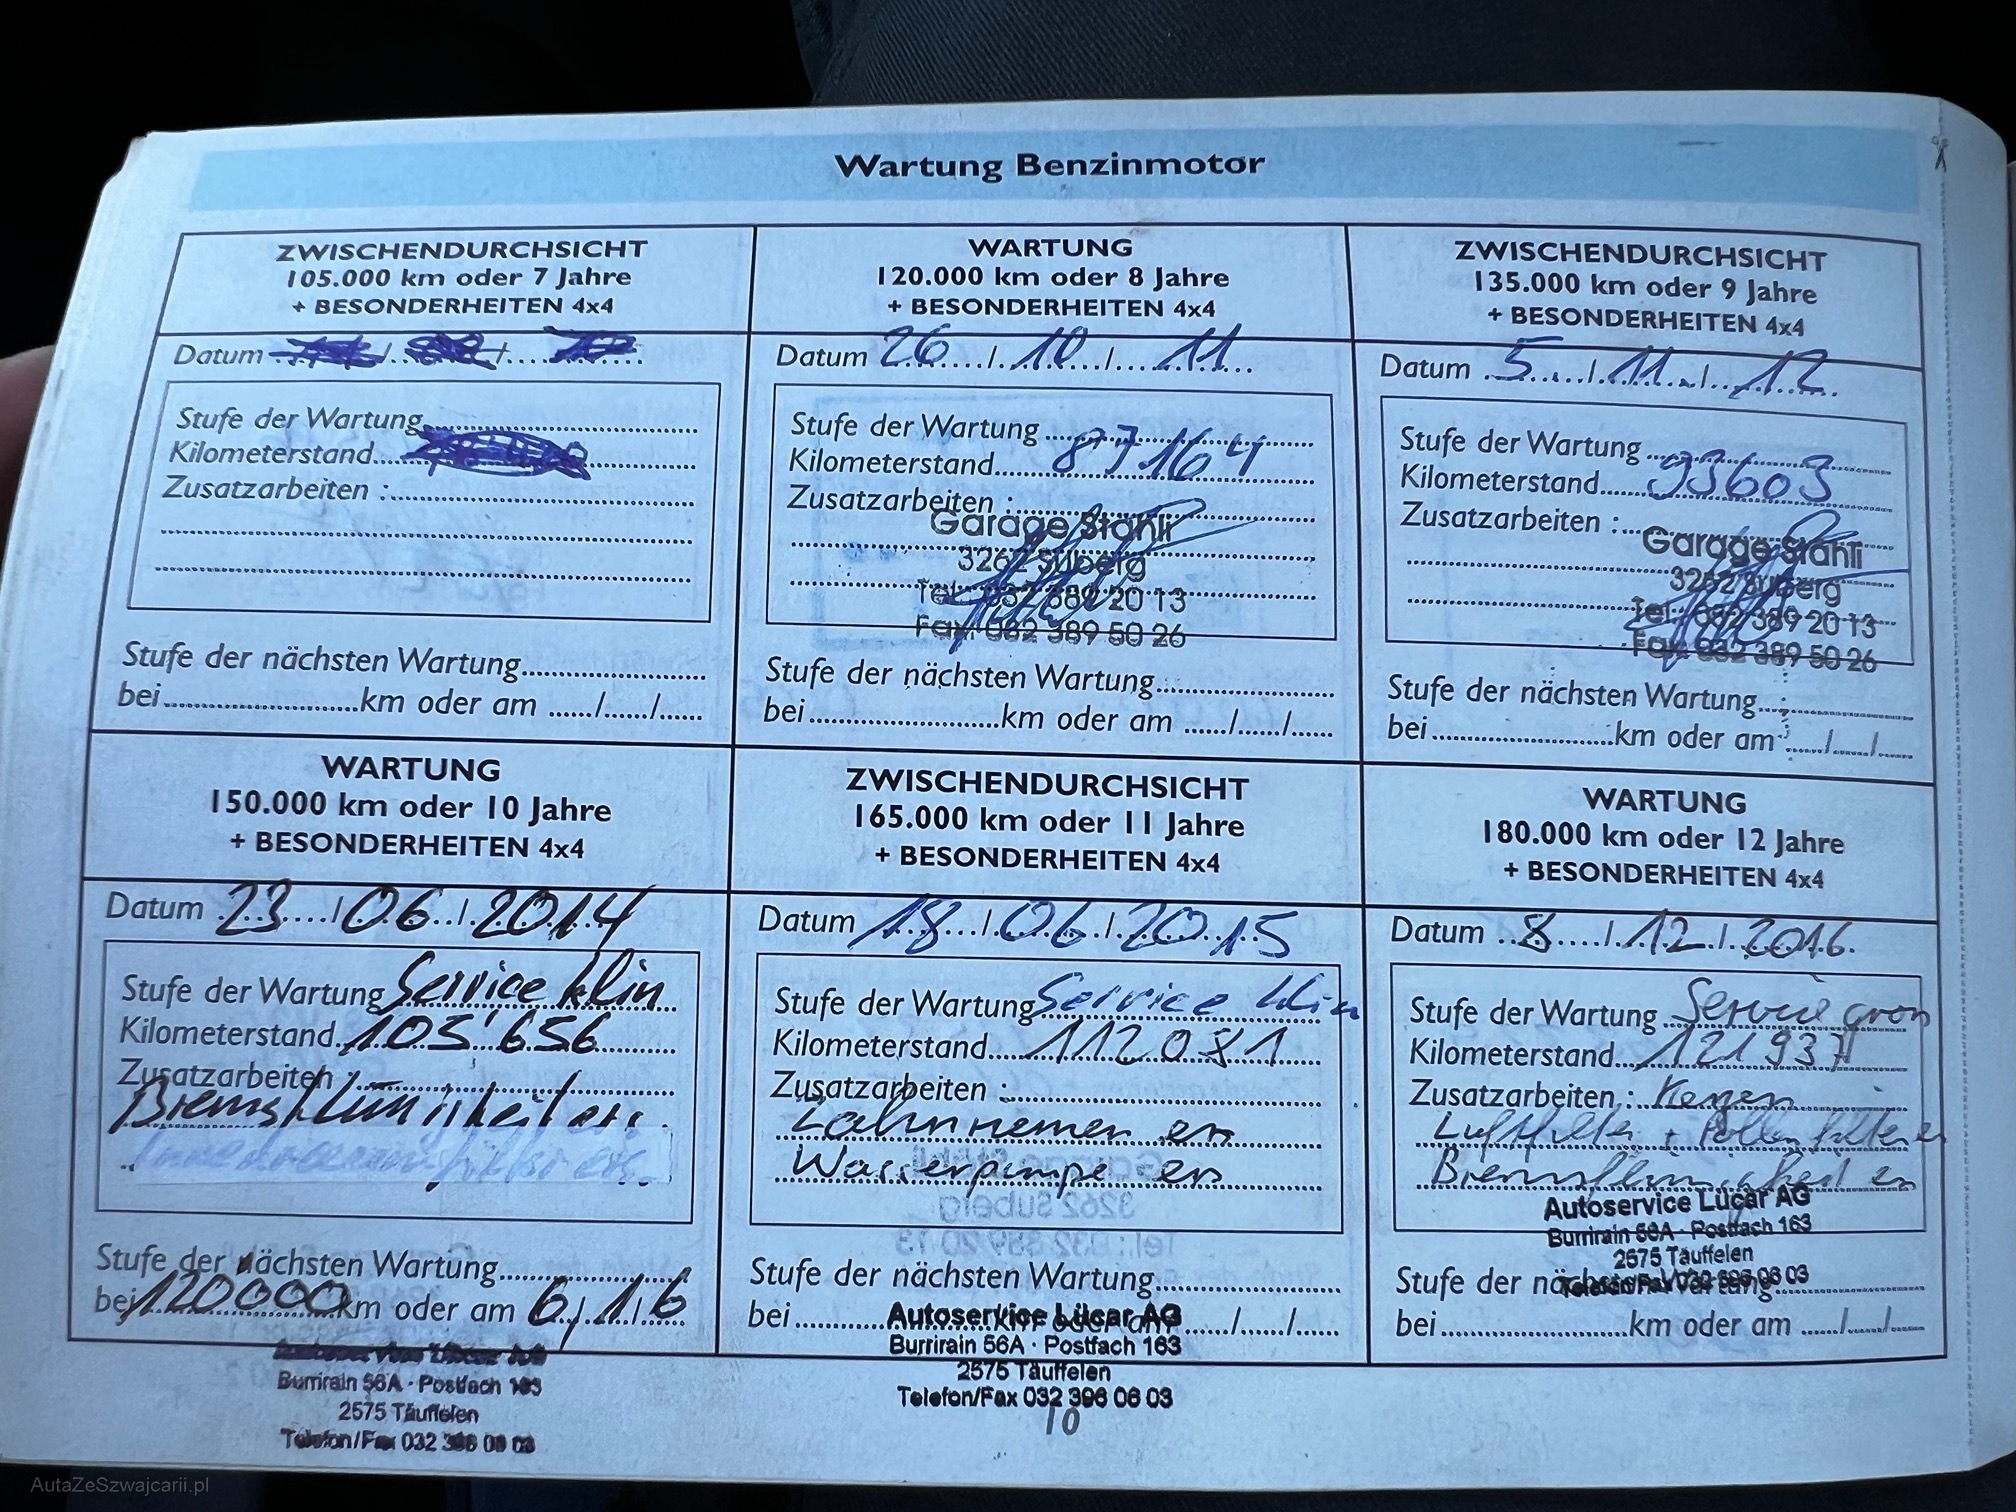 Wartung Benzinmotor
ZWISCHENDURCHSICHT
105.000 km oder 7 Jahre
+ BESONDERHEITEN 4x4
Datum
Stufe der Wartung
Kilometerstand
Zusatzarbeiten :
Stufe der nächsten Wartung
bei km oder am / /
WARTUNG
120.000 km oder 8 Jahre
+ BESONDERHEITEN 4x4
Datum 26 / 10 / 11
Stufe der Wartung
Kilometerstand 87164
Zusatzarbeiten :
Garage Stähli
3262 Suberg
Tel.: 032 389 20 13
Fax: 032 389 50 26
Stufe der nächsten Wartung
bei km oder am / /
ZWISCHENDURCHSICHT
135.000 km oder 9 Jahre
+ BESONDERHEITEN 4x4
Datum 5. / 11. / 12
Stufe der Wartung
Kilometerstand 93603
Zusatzarbeiten :
Garage Stähli
3262 Suberg
Tel.: 032 389 20 13
Fax: 032 389 50 26
Stufe der nächsten Wartung
bei km oder am / /
WARTUNG
150.000 km oder 10 Jahre
+ BESONDERHEITEN 4x4
Datum 23 / 06 / 2014
Stufe der Wartung Service klin
Kilometerstand 105'656
Zusatzarbeiten :
Stufe der nächsten Wartung
bei 120000 km oder am 6/16
Burrirain 56A · Postfach 163
2575 Täuffelen
Telefon/Fax 032 396 06 03
ZWISCHENDURCHSICHT
165.000 km oder 11 Jahre
+ BESONDERHEITEN 4x4
Datum 18 / 06 / 2015
Stufe der Wartung Service klin
Kilometerstand 112081
Zusatzarbeiten :
Zahnriemen ers
Wasserpumpe ers
Stufe der nächsten Wartung
bei km oder am / /
Autoservice Lücar AG
Burrirain 56A · Postfach 163
2575 Täuffelen
Telefon/Fax 032 396 06 03
WARTUNG
180.000 km oder 12 Jahre
+ BESONDERHEITEN 4x4
Datum 8 / 12 / 2016
Stufe der Wartung Service gros
Kilometerstand 121937
Zusatzarbeiten : Kerzen
Luftfilter + Pollenfilter er
Bremsflüssigkeit er
Autoservice Lücar AG
Burrirain 56A · Postfach 163
2575 Täuffelen
Telefon/Fax 032 396 06 03
Stufe der nächsten Wartung
bei km oder am / /
10
AutaZeSzwajcarii.pl